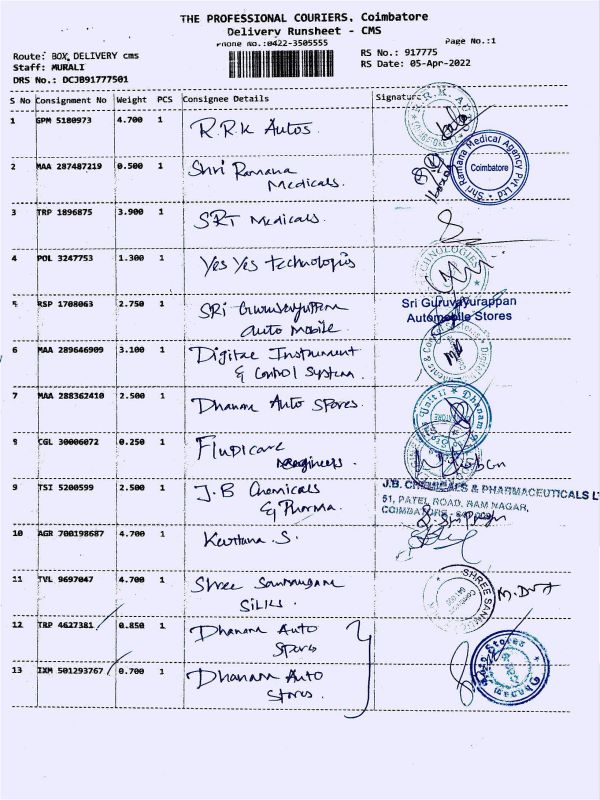 THE PROFESSIONAL COURIERS, Coimbatore
Delivery Runsheet - CMS
Phone No.:0422-3505555
Page No.:1
Route: BOX DELIVERY cms
RS No.: 917775
Staff: MURALI
RS Date: 05-Apr-2022
DRS No.: DCJB91777501
S No Consignment No Weight PCS Consignee Details Signature
1 GPM 5180973 4.700 1 R.R.K Autos.
2 MAA 287487219 0.500 1 Shri Ramana
Medicals.
Shri Ramana Medical Agency Pvt Ltd
Coimbatore
3 TRP 1896875 3.900 1 SRT Medicals.
4 POL 3247753 1.300 1 Yes Yes technologis
5 RSP 1708063 2.750 1 SRi Guruvayuttra
Auto Mobile.
Sri Guruvayurappan
Automobile Stores
6 MAA 289646909 3.100 1 Digital Instrument
& Control System.
7 MAA 288362410 2.500 1 Dhanam Auto Spores.
Unit II Dhanam
8 CGL 30006072 0.250 1
9 TSI 5200599 2.500 1 J.B Chemicals
& Pharma.
J.B. CHEMICALS & PHARMACEUTICALS L
51, PATEL ROAD, RAM NAGAR,
COIMBATORE
10 AGR 700198687 4.700 1 Keerthana S.
11 TVL 9697047 4.700 1 Shree
Silks.
SHREE
12 TRP 4627381 0.850 1 Dhanam Auto
Spores
13 IXM 501293767 0.700 1 Dhanam Auto
Stores.
Dhanam Auto Stores